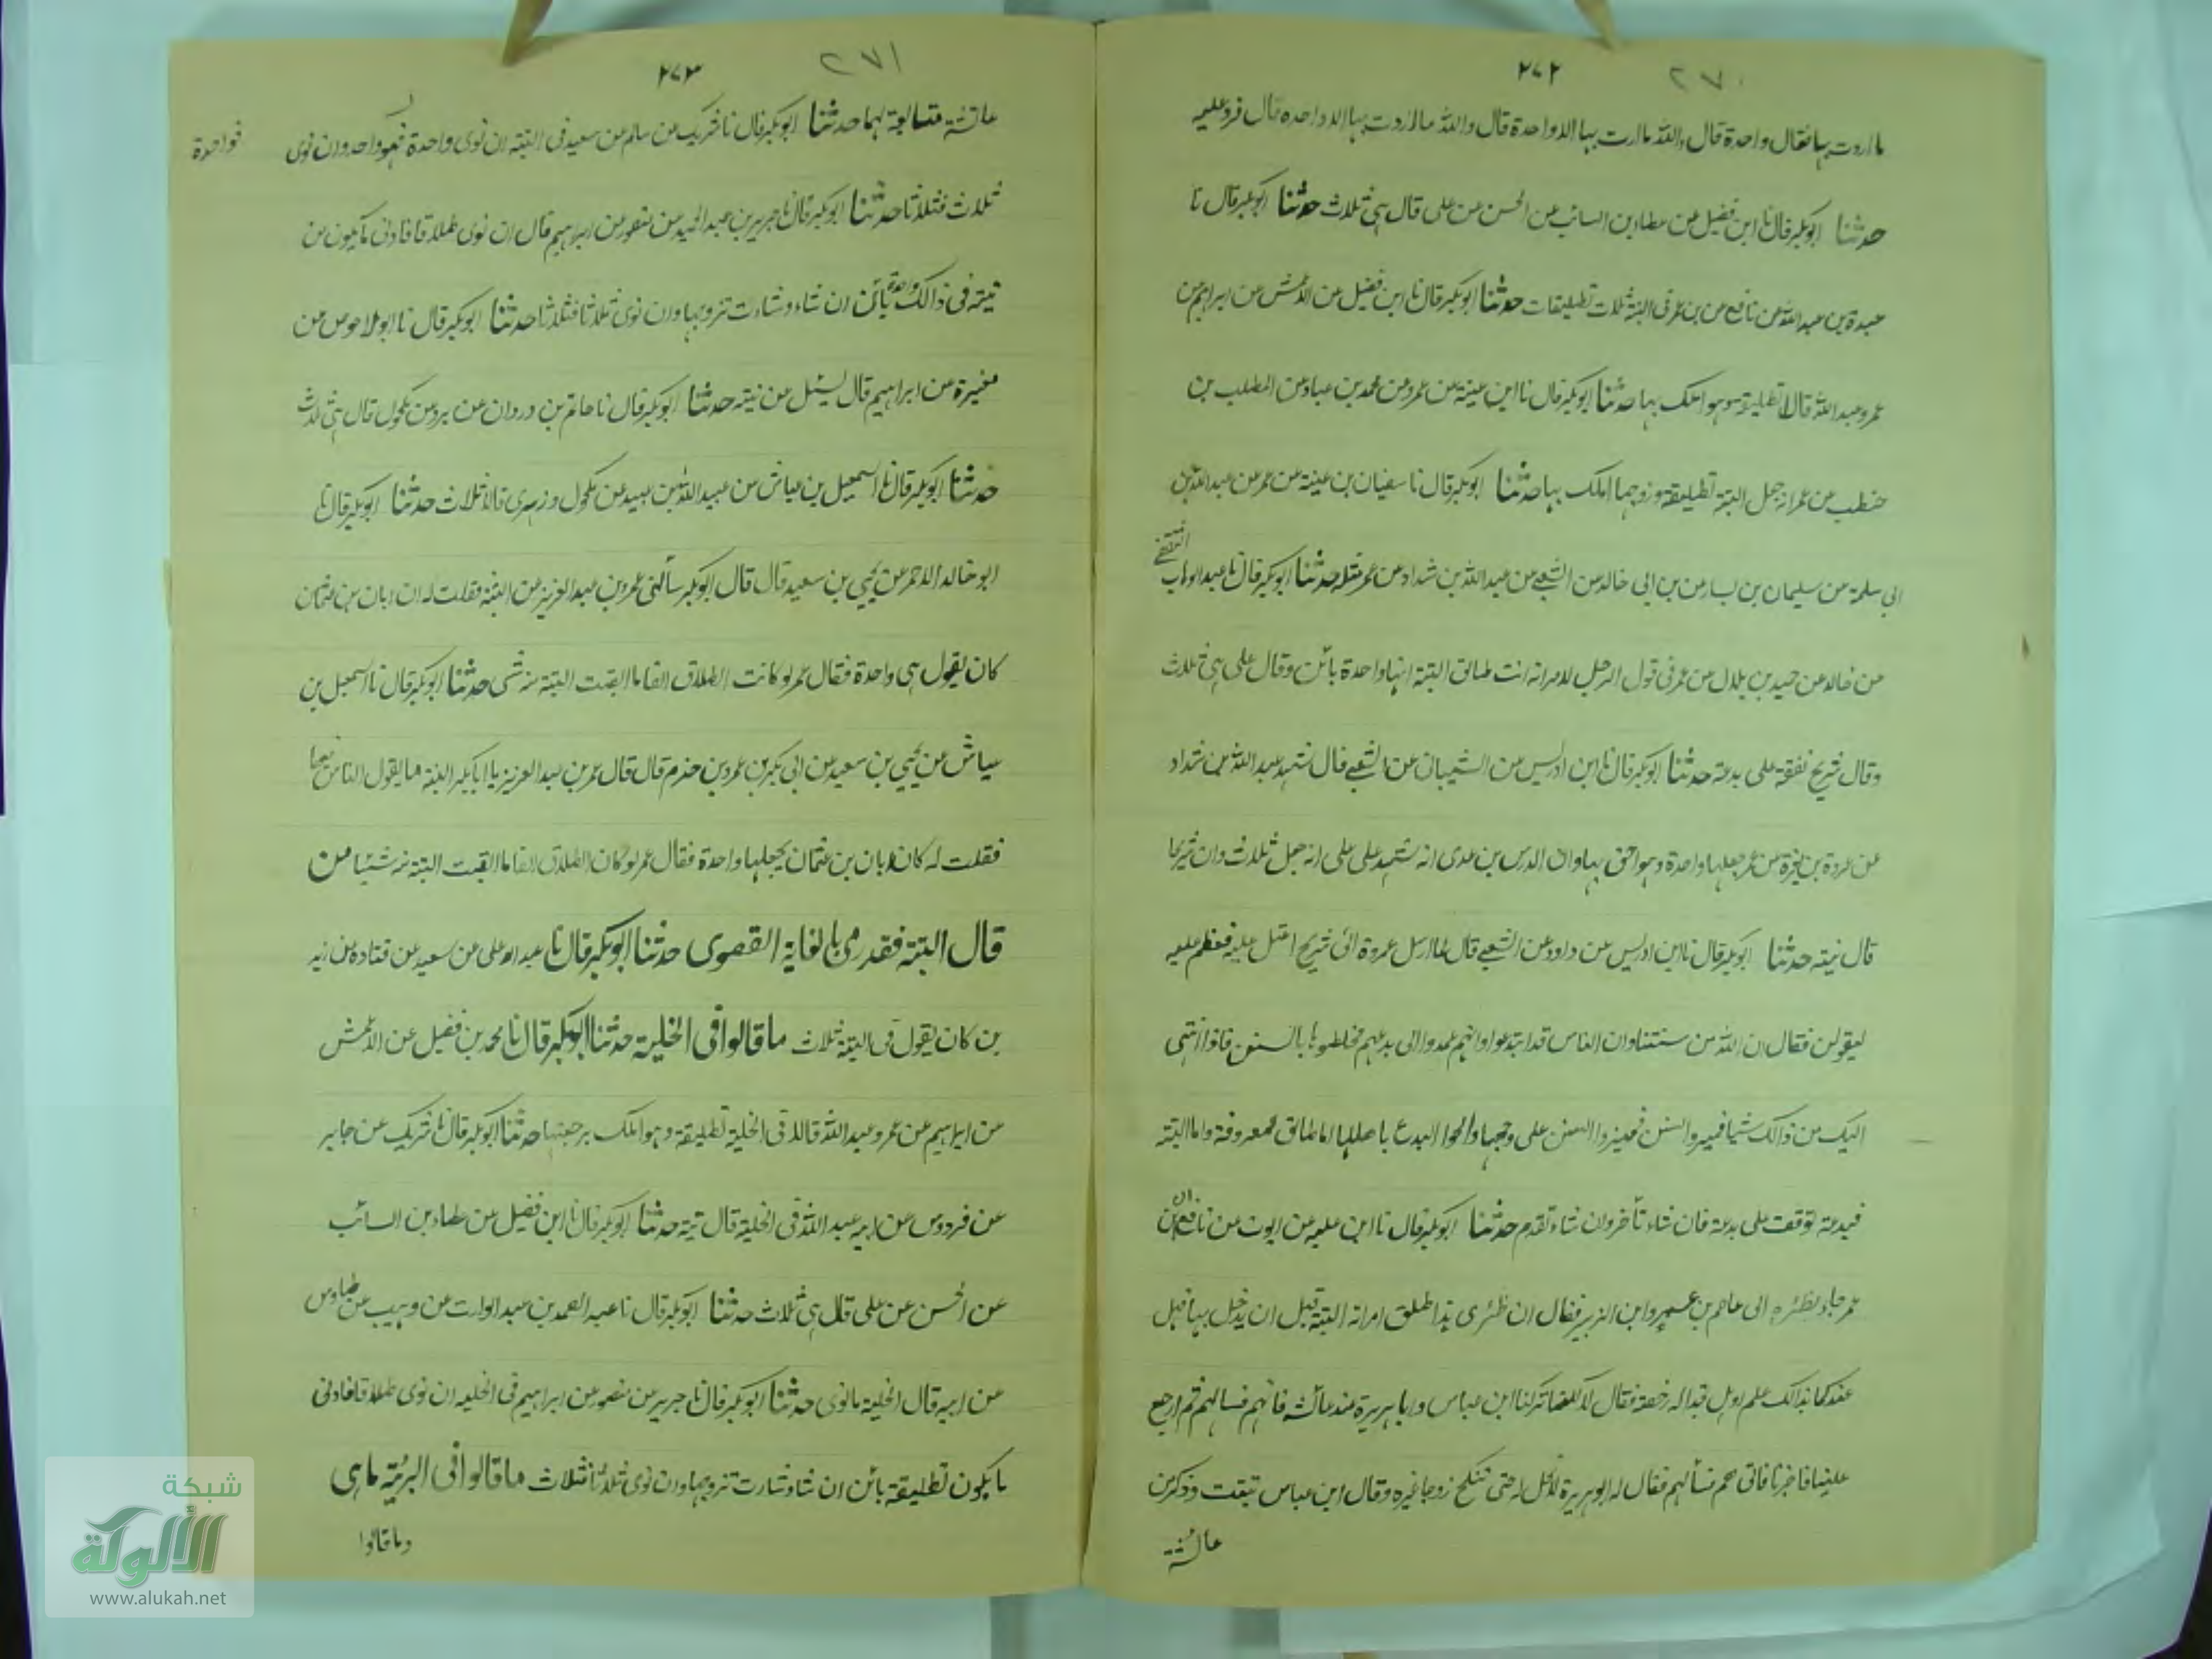 ٢٧٢ ٢٧٠
ما اردت بها فقال واحدة قال والله ما اردت بها الا واحدة قال والله ما اردت بها الا واحده قال فرد عليه
حدثنا ابو بكر قال نا ابن فضيل عن عطاء بن السائب عن الحسن عن على قال هى ثلاث حدثنا ابو بكر قال نا
عبدة بن عبد الله عن نافع عن بن عمر فى البتة ثلاث تطليقات حدثنا ابو بكر قال نا ابن فضيل عن الاعمش عن ابراهيم عن
عمر وعبد الله قالا تطليقة وهو املك بها حدثنا ابو بكر قال نا ابن عينة عن عمرو عن محمد بن عباد عن المطلب بن
حنطب عن عمر انه جعل البتة تطليقة وزوجها املك بها حدثنا ابو بكر قال نا سفيان بن عينة عن عمر عن عبد الله بن
ابى سلمة عن سليمان بن يسار عن بن ابى خالد عن الشعبى عن عبد الله بن شداد عن عمر مثله حدثنا ابو بكر قال نا عبد الوهاب الثقفى
عن خالد عن حميد بن بلال عن عمر فى قول الرجل لامراته انت طالق البتة انها واحدة بائن وقال على هى ثلاث
وقال شريح نفقة على بدعة حدثنا ابو بكر قال نا ابن ادريس عن الشيبان عن الشعبى قال شهد عبد الله بن شداد
عن عروة بن مغيرة عن عمر جعلها واحدة وهو احق بها وان الدس بن عدى انه شهد على على انه جعل ثلاث وان شريحا
قال نيته حدثنا ابو بكر قال نا ابن ادريس عن داود عن الشعبى قال لما ارسل عروة الى شريح اعتل عليه فعظم عليه
ليقولن فقال ان الله سن سننا وان الناس قد ابتدعوا وانهم عمدوا الى بدعهم فخلطوها بالسنن فاذا انتهى
اليك من ذالك شيا فميزوا السنن فميزوا السنن على وجهها والحوا البدع باهلها اما طالق فمعروفة واما البتة
فبدعة توقفت على بدعة فان شاء تأخر وان شاء تقدم حدثنا ابو بكر قال نا ابن علية عن ايوب عن نافع ان
عمر جاء بظئره الى عاصم بن عمير وابن الزبير فقال ان ظئرى هذا طلق امراته البتة قبل ان يدخل بها فهل
عندكما بذالك علم اوهل تجدا له رخصة فقال لا لكنا تركنا ابن عباس وابا هريرة عند عائشة فاتهم فسالهم ثم ارجع
علينا فاخبرنا فاتى هم فسألهم فقال له ابو هريرة لا تحل له حتى تنكح زوجا غيره وقال ابن عباس تبقت وذكر من
عائشة
٢٧٣ ٢٧١
عائشة متسابعة لهما حدثنا ابو بكر قال نا شريك عن سالم عن سعيد فى البتة ان نوى واحدة فهو واحد وان نوى فواحدة
ثلاث فثلاثا حدثنا ابو بكر قال نا جرير بن عبد الحميد عن منصور عن ابراهيم قال ان نوى طلاقا فادنى ما يكون من
نيته فى ذالك واحدة بائن ان شاء وشاءت تزوجها وان نوى ثلاثا فثلاثا حدثنا ابو بكر قال نا ابو الاحوص عن
مغيرة عن ابراهيم قال يسئل عن نيته حدثنا ابو بكر قال نا حاتم بن دردان عن برد عن مكحول قال هى ثلاث
حدثنا ابو بكر قال نا اسمعيل بن عياش عن عبيد الله بن عبيد عن مكحول وزهرى قالا ثلاث حدثنا ابو بكر قال نا
ابو خالد الاحمر عن يحيى بن سعيد قال قال ابو بكر سألنى عمر بن عبد العزيز عن البتة فقلت له ان ابان بن عثمان
كان يقول هى واحدة فقال عمر لو كانت الطلاق الفا ما ابقت البتة منه شى حدثنا ابو بكر قال نا اسمعيل بن
عياش عن يحيى بن سعيد عن ابى بكر بن عمرو بن حزم قال قال عمر بن عبد العزيز يا ابا بكر البتة ما يقول الناس فيها
فقلت له كان ابان بن عثمان يجعلها واحدة فقال عمر لو كان الطلاق الفا ما ابقت البتة منه شيئا من
قال البتة فقد رمى بالغاية القصوى حدثنا ابو بكر قال نا عبد الاعلى عن سعيد عن قتاده عن زيد
بن كان يقول فى البتة ثلاث ما قالوا فى الخلية حدثنا ابو بكر قال نا محمد بن فضيل عن الاعمش
عن ابراهيم عن عمر وعبد الله قالا فى الخلية تطليقة وهو املك برجعتها حدثنا ابو بكر قال نا شريك عن جابر
عن فردوس عن ابيه عبد الله فى الخلية قال نية حدثنا ابو بكر قال نا ابن فضيل عن عطاء بن السائب
عن الحسن عن على قال هى ثلاث حدثنا ابو بكر قال نا عبد الصمد بن عبد الوارث عن وهيب عن طاوس
عن ابيه قال الخلية ما نوى حدثنا ابو بكر قال نا جرير عن منصور عن ابراهيم فى الخليه ان نوى طلاقا فادنى
ما يكون تطليقة بائن ان شاء وشاءت تزوجها وان نوى ثلاثا فثلاث ما قالوا فى البرئة ما هى
وما قالوا
شبكة
الألوكة
www.alukah.net